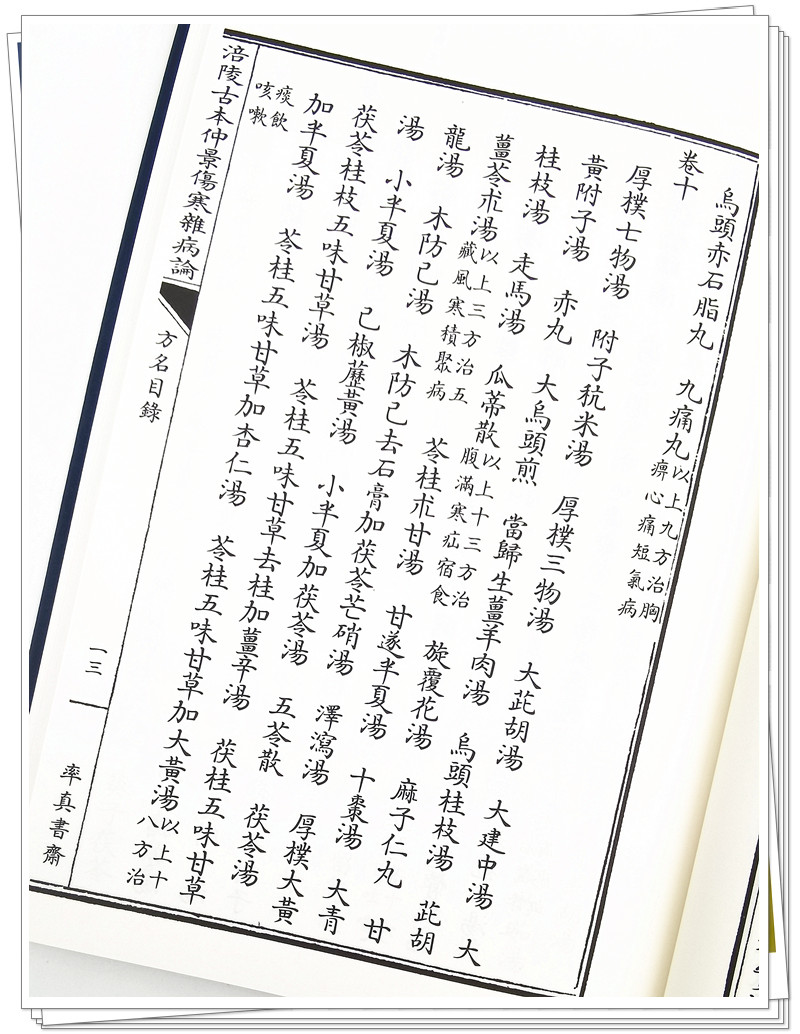 烏頭赤石脂丸 九痛丸 以上九方治胸痹心痛短氣病
卷十
厚樸七物湯 附子秔米湯 厚樸三物湯 大茈胡湯 大建中湯 大
黃附子湯 赤丸 大烏頭煎 當歸生薑羊肉湯 烏頭桂枝湯 茈胡
桂枝湯 走馬湯 瓜蒂散 以上十三方治腹滿寒疝宿食 旋覆花湯 麻子仁丸 甘
薑苓朮湯 以上三方治五藏風寒積聚病 苓桂朮甘湯 甘遂半夏湯 十棗湯 大青
龍湯 木防己湯 木防己去石膏加茯苓芒硝湯 澤瀉湯 厚樸大黃
湯 小半夏湯 己椒藶黃湯 小半夏加茯苓湯 五苓散 茯苓湯
茯苓桂枝五味甘草湯 苓桂五味甘草去桂加薑辛湯 茯桂五味甘草
加半夏湯 苓桂五味甘草加杏仁湯 苓桂五味甘草加大黃湯 以上十八方治
痰飲咳嗽
涪陵古本仲景傷寒雜病論 方名目錄 一三 率真書齋